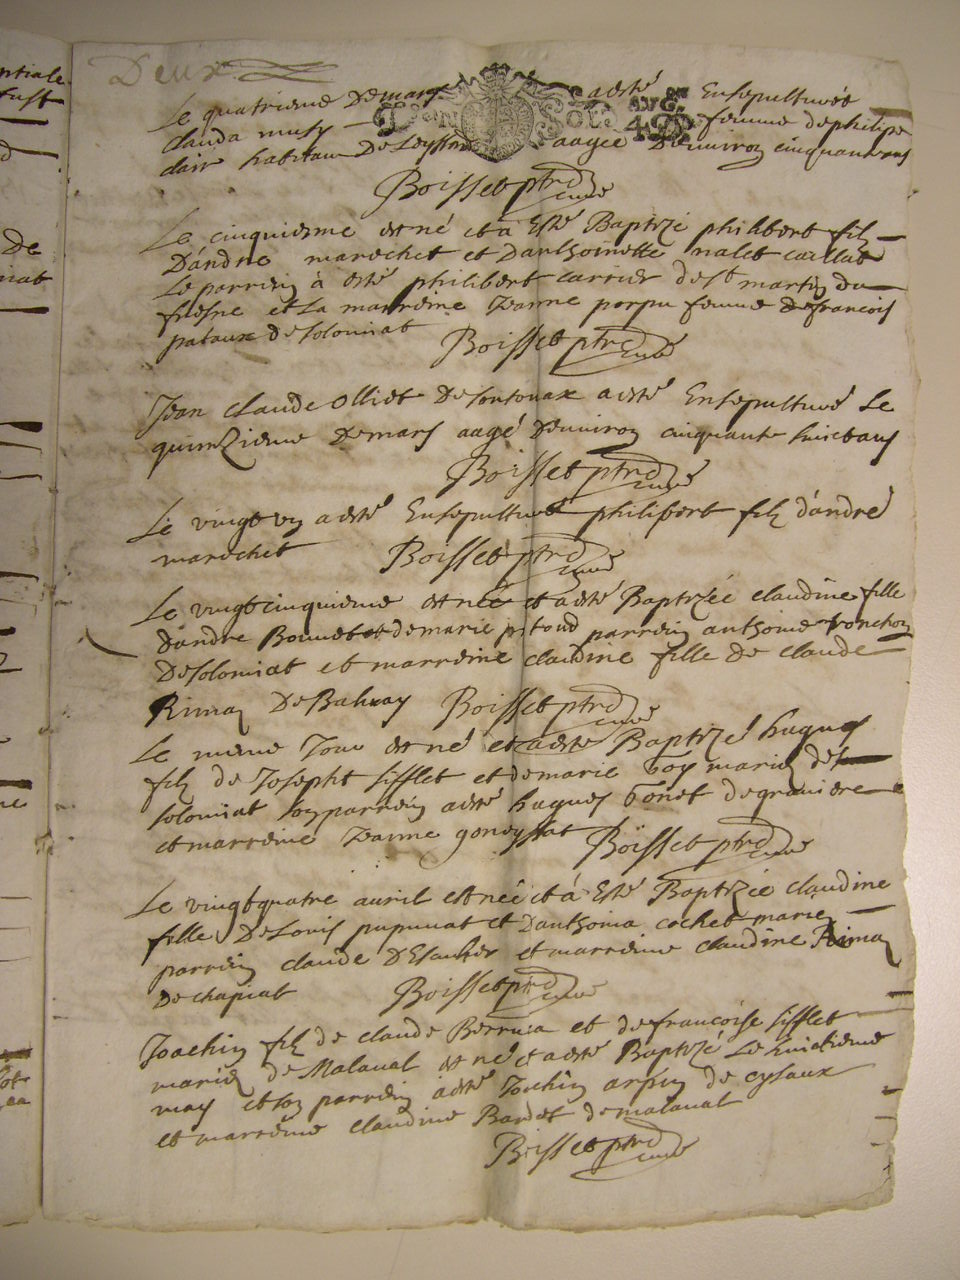 Deux
Le quatrieme De mars a esté Ensepulturée
clauda musy femme de philipe
clair habitan De Leyssar aagée Denuiron cinquante ans
Boisset ptre curé
Le cinquieme est né et a Esté Baptizé philibert filz
Dandre marechet et Danthoinette nalet caillat
Le parrein à esté philibert carrier de st martin du
fresne et La marreine Jeanne femme de francois
pataux de soloniat Boisset ptre curé
Jean claude olliet De a esté Ensepulturé Le
quinzieme De mars aagé Denuiron cinquante huict ans
Boisset ptre curé
Le vingt un a esté Ensepulturé philibert filz d'andré
marechet Boisset ptre curé
Le vingt cinquieme est née et a esté Baptizée claudine fille
d'andre Bonnet et de marie pitoud parrein anthoine
De soloniat et marreine claudine fille De claude
De Boisset ptre curé
Le meme Jour est né et a esté Baptizé hugues
filz de Joseph sifflet et de marie mariez de
soloniat son parrein a esté hugues de graniere
et marreine Jeanne Boisset ptre curé
Le vingt quatre auril est née et à Esté Baptizée claudine
fille De Louis et Danthoina cochet mariez
parrein claude et marreine claudine
De chapiat Boisset ptre curé
Joachin filz de claude et de francoise sifflet
mariez de Malaual est né et a esté Baptizé Le huictieme
may et son parrein a esté Joachin de cysaux
et marreine claudine Bardet de malaual
Boisset ptre curé